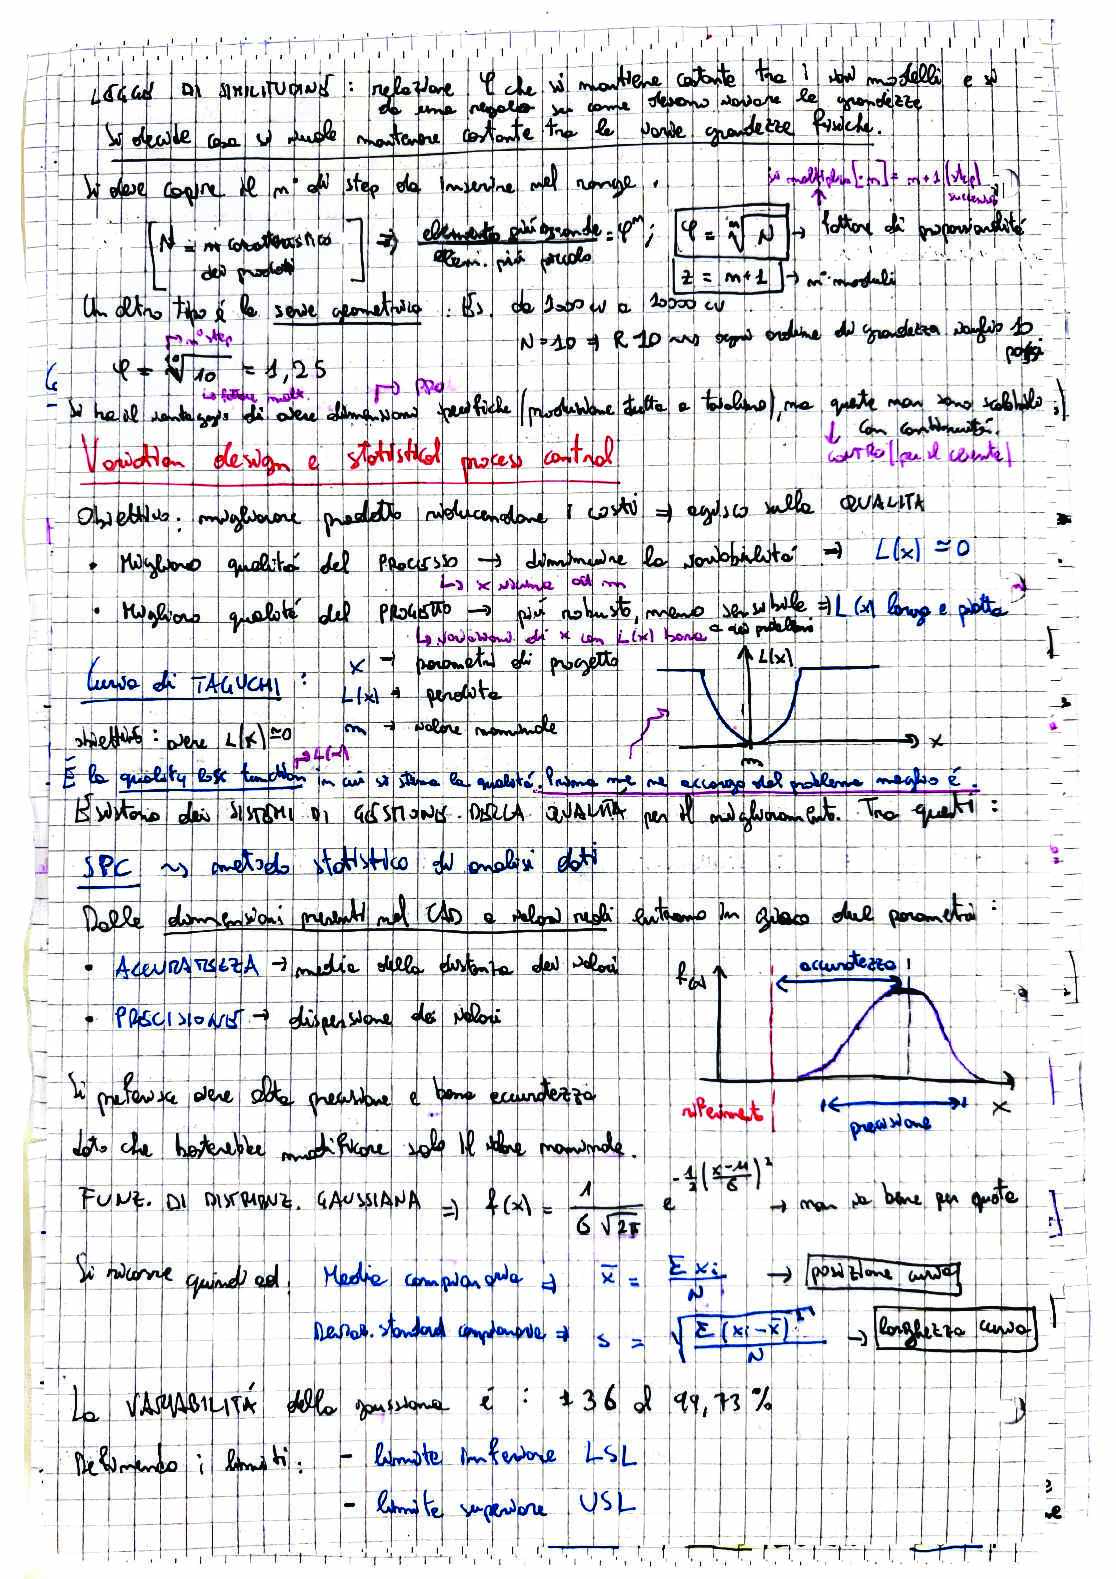 LEGGE DI SIMILITUDINE : relazione φ che si mantiene costante tra i vari modelli e si
da una regola su come devono variare le grandezze
Si decide cosa si vuole mantenere costante tra le varie grandezze fisiche.
Si deve capire il n° di step da inserire nel range.
si moltiplica [·m] = m+1 (step)
successivo
[N = n caratteristico dei prodotti] ⇒ elemento più grande / elem. più piccolo = φ^m ; φ = ᵐ√N → fattore di proporzionalità
z = m+1 → n° moduli
Un altro tipo é la serie geometrica. Es. da 1000 cv a 10000 cv
→ n° step
N=10 ⇒ R10 ~> ogni ordine di grandezza voglio 10
passi
φ = ¹⁰√10 = 1,25
→ fattore molt.
→ PRO
Si ha il vantaggio di avere dimensioni specifiche (produzione fatta a tavolino), ma queste non sono scalabili
con continuità.
↓ CONTRO (per il cliente)
Variation design e statistical process control
Obiettivo: migliorare prodotto riducendone i costi ⇒ agisco sulla QUALITÀ
• Migliora qualitá del PROCESSO → diminuire la variabilitá ⇒ L(x) ≃ 0
↳ x vicina ad m
• Migliora qualitá del PROGETTO → più robusto, meno sensibile ⇒ L(x) larga e piatta
a dei problemi
↳ variazioni di x con L(x) bassa
Curva di TAGUCHI : x → parametri di progetto
L(x) → perdita
m → valore nominale
L(x)
x
m
obiettivo: avere L(x) ≃ 0
→ L(x)
É la quality loss function in cui si stima la qualità. Prima me ne accorgo del problema meglio é.
Esistono dei SISTEMI DI GESTIONE DELLA QUALITÀ per il miglioramento. Tra questi :
SPC ~> metodo statistico di analisi dati
Dalle dimensioni presenti nel CAD a valori reali entrano in gioco due parametri :
• ACCURATEZZA → media della distanza dei valori
• PRECISIONE → dispersione dei valori
f(x)
accuratezza
riferimento
precisione
x
Si preferisce avere alta precisione e bassa accuratezza
dato che basterebbe modificare solo il valore nominale.
FUNZ. DI DISTRIBUZ. GAUSSIANA ⇒ f(x) = 1/(σ√2π) e^(-½((x-μ)/σ)²) → non va bene per quote
Si ricorre quindi ad : Media campionaria ⇒ x̄ = Σxi/N → posizione curva
Deviaz. standard campionaria ⇒ s = √(Σ(xi-x̄)²/N) → larghezza curva
La VARIABILITÁ della gaussiana é : ±3σ al 99,73 %
Definendo i limiti : - limite inferiore LSL
- limite superiore USL